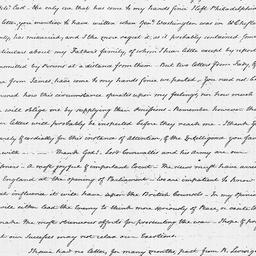 Cod. The only one that has come to my hands since I left Philadelphia
letter, you mention to have written when Gen.l Washington was in
has miscarried, and I the more regret it, as it probably contained some
particulars about my Father's family, of whom I hear little except by report
transmitted by Persons at a distance from them. But two letters from Judy, &
from James, have come to my hands since we parted. You need not be
how this circumstance operates upon my feelings, nor how much
will oblige me by supplying their Omissions. Remember however that
letters will probably be inspected before they reach me. Thank G
& cordially for this instance of attention, & the Intelligence you fav
with Thank God! Lord Cornwallis and his army are our
a most joyful & important Event. The news must have arriv
England at the opening of Parliament. We are impatient to know
influence it will have upon the British Councils. In my opinion
will either lead the Enemy to think more seriously of Peace, or
The most strenuous efforts for prosecuting the war. I hope & pray
our Success may not relax our Exertions.
I have had no letter, for many months past from R. Livings